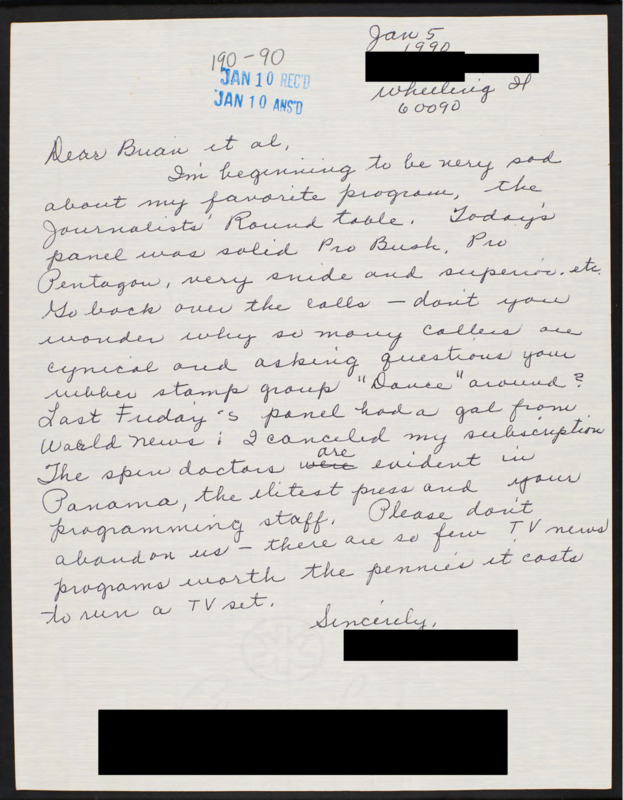 Jan 5
1990
190-90
JAN 10 REC'D
JAN 10 ANS'D
Wheeling Il
60090
Dear Brian et al,
I'm beginning to be very sad
about my favorite program, the
Journalists' Round table. Today's
panel was solid Pro Bush, Pro
Pentagon, very snide and superior. etc.
Go back over the calls – don't you
wonder why so many callers are
cynical and asking questions your
rubber stamp group "Dance" around?
Last Friday's panel had a gal from
World News; I canceled my subscription
The spin doctors were are evident in
Panama, the elitest press and your
programming staff. Please don't
abandon us – there are so few TV news
programs worth the pennies it costs
to run a TV set.
Sincerely,